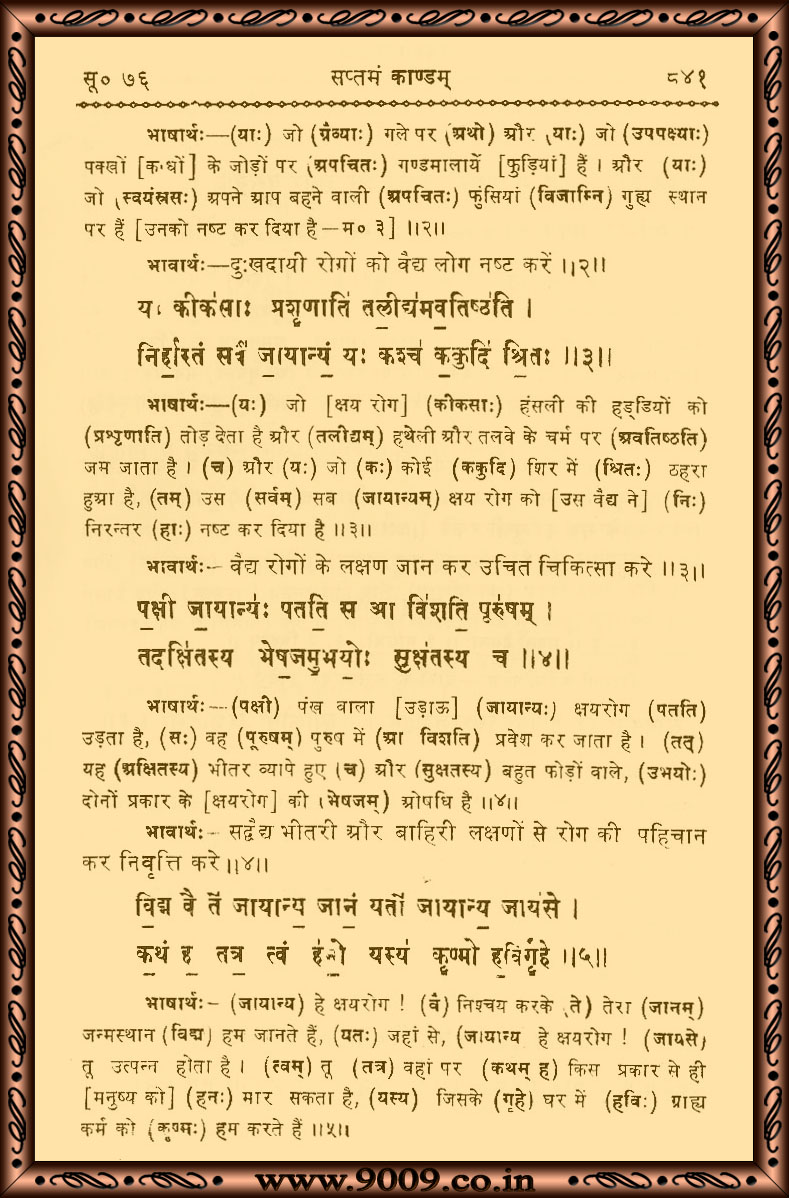 सू० ७६ सप्तमं काण्डम् ८४१
भाषार्थः—(याः) जो (ग्रैव्याः) गले पर (अथो) और (याः) जो (उपपक्ष्याः)
पक्खों [कन्धों] के जोड़ों पर (अपचितः) गण्डमालायें [फुड़ियां] हैं । और (याः)
जो (स्वयंस्रसः) अपने आप बहने वाली (अपचितः) फुंसियां (विजाम्नि) गुह्य स्थान
पर हैं [उनको नष्ट कर दिया है—म० ३] ॥२॥
भावार्थः—दुःखदायी रोगों को वैद्य लोग नष्ट करें ॥२॥
यः कीक॑साः प्रशृ॒णाति॑ तली॒द्य॑मव॒तिष्ठ॑ति ।
निर्हा॒स्तं सर्वं॑ जा॒यान्यं॒ यः कश्च॑ क॒कुदि॑ श्रि॒तः ॥३॥
भाषार्थः—(यः) जो [क्षय रोग] (कीकसाः) हंसली की हड्डियों को
(प्रशृणाति) तोड़ देता है और (तलीद्यम्) हथेली और तलवे के चर्म पर (अवतिष्ठति)
जम जाता है । (च) और (यः) जो (कः) कोई (ककुदि) शिर में (श्रितः) ठहरा
हुआ है, (तम्) उस (सर्वम्) सब (जायान्यम्) क्षय रोग को [उस वैद्य ने] (निः)
निरन्तर (हाः) नष्ट कर दिया है ॥३॥
भावार्थः— वैद्य रोगों के लक्षण जान कर उचित चिकित्सा करे ॥३॥
प॒क्षी जा॒यान्यः॑ पतति॒ स आ वि॑शति॒ पूरु॑षम् ।
तदक्षि॑तस्य भेष॒जमु॒भयोः॒ सुक्ष॑तस्य च ॥४॥
भाषार्थः—(पक्षी) पंख वाला [उड़ाऊ] (जायान्यः) क्षयरोग (पतति)
उड़ता है, (सः) वह (पूरुषम्) पुरुष में (आ विशति) प्रवेश कर जाता है । (तत्)
यह (अक्षितस्य) भीतर व्यापे हुए (च) और (सुक्षतस्य) बहुत फोड़ों वाले, (उभयोः)
दोनों प्रकार के [क्षयरोग] की (भेषजम्) ओषधि है ॥४॥
भावार्थः— सद्वैद्य भीतरी और बाहिरी लक्षणों से रोग की पहिचान
कर निवृत्ति करे ॥४॥
वि॒द्म वै ते॑ जायान्य॒ जानं॒ यतो॑ जायान्य॒ जाय॑से ।
क॒थं ह॒ तत्र॒ त्वं ह॑नो॒ यस्य॑ कृ॒ण्मो ह॒विर्गृ॒हे ॥५॥
भाषार्थः— (जायान्य) हे क्षयरोग ! (वै) निश्चय करके (ते) तेरा (जानम्)
जन्मस्थान (विद्म) हम जानते हैं, (यतः) जहां से, (जायान्य हे क्षयरोग ! (जायसे)
तू उत्पन्न होता है । (त्वम्) तू (तत्र) वहां पर (कथम् ह) किस प्रकार से ही
[मनुष्य को] (हनः) मार सकता है, (यस्य) जिसके (गृहे) घर में (हविः) ग्राह्य
कर्म को (कृण्मः) हम करते हैं ॥५॥
www.9009.co.in